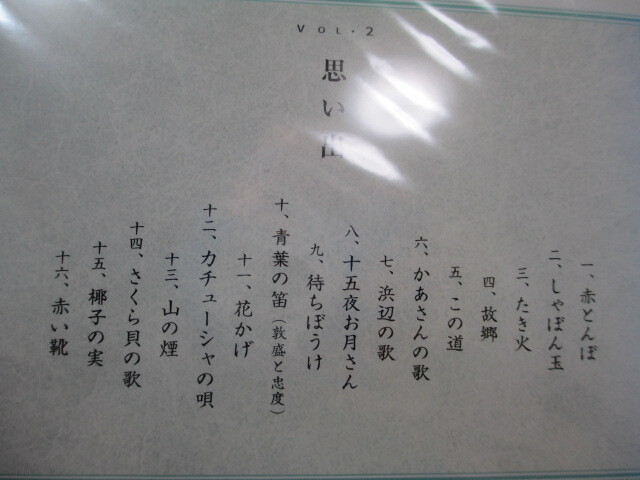 VOL・2
思い出
一、赤とんぼ
二、しゃぼん玉
三、たき火
四、故郷
五、この道
六、かあさんの歌
七、浜辺の歌
八、十五夜お月さん
九、待ちぼうけ
十、青葉の笛（敦盛と忠度）
十一、花かげ
十二、カチューシャの唄
十三、山の煙
十四、さくら貝の歌
十五、椰子の実
十六、赤い靴